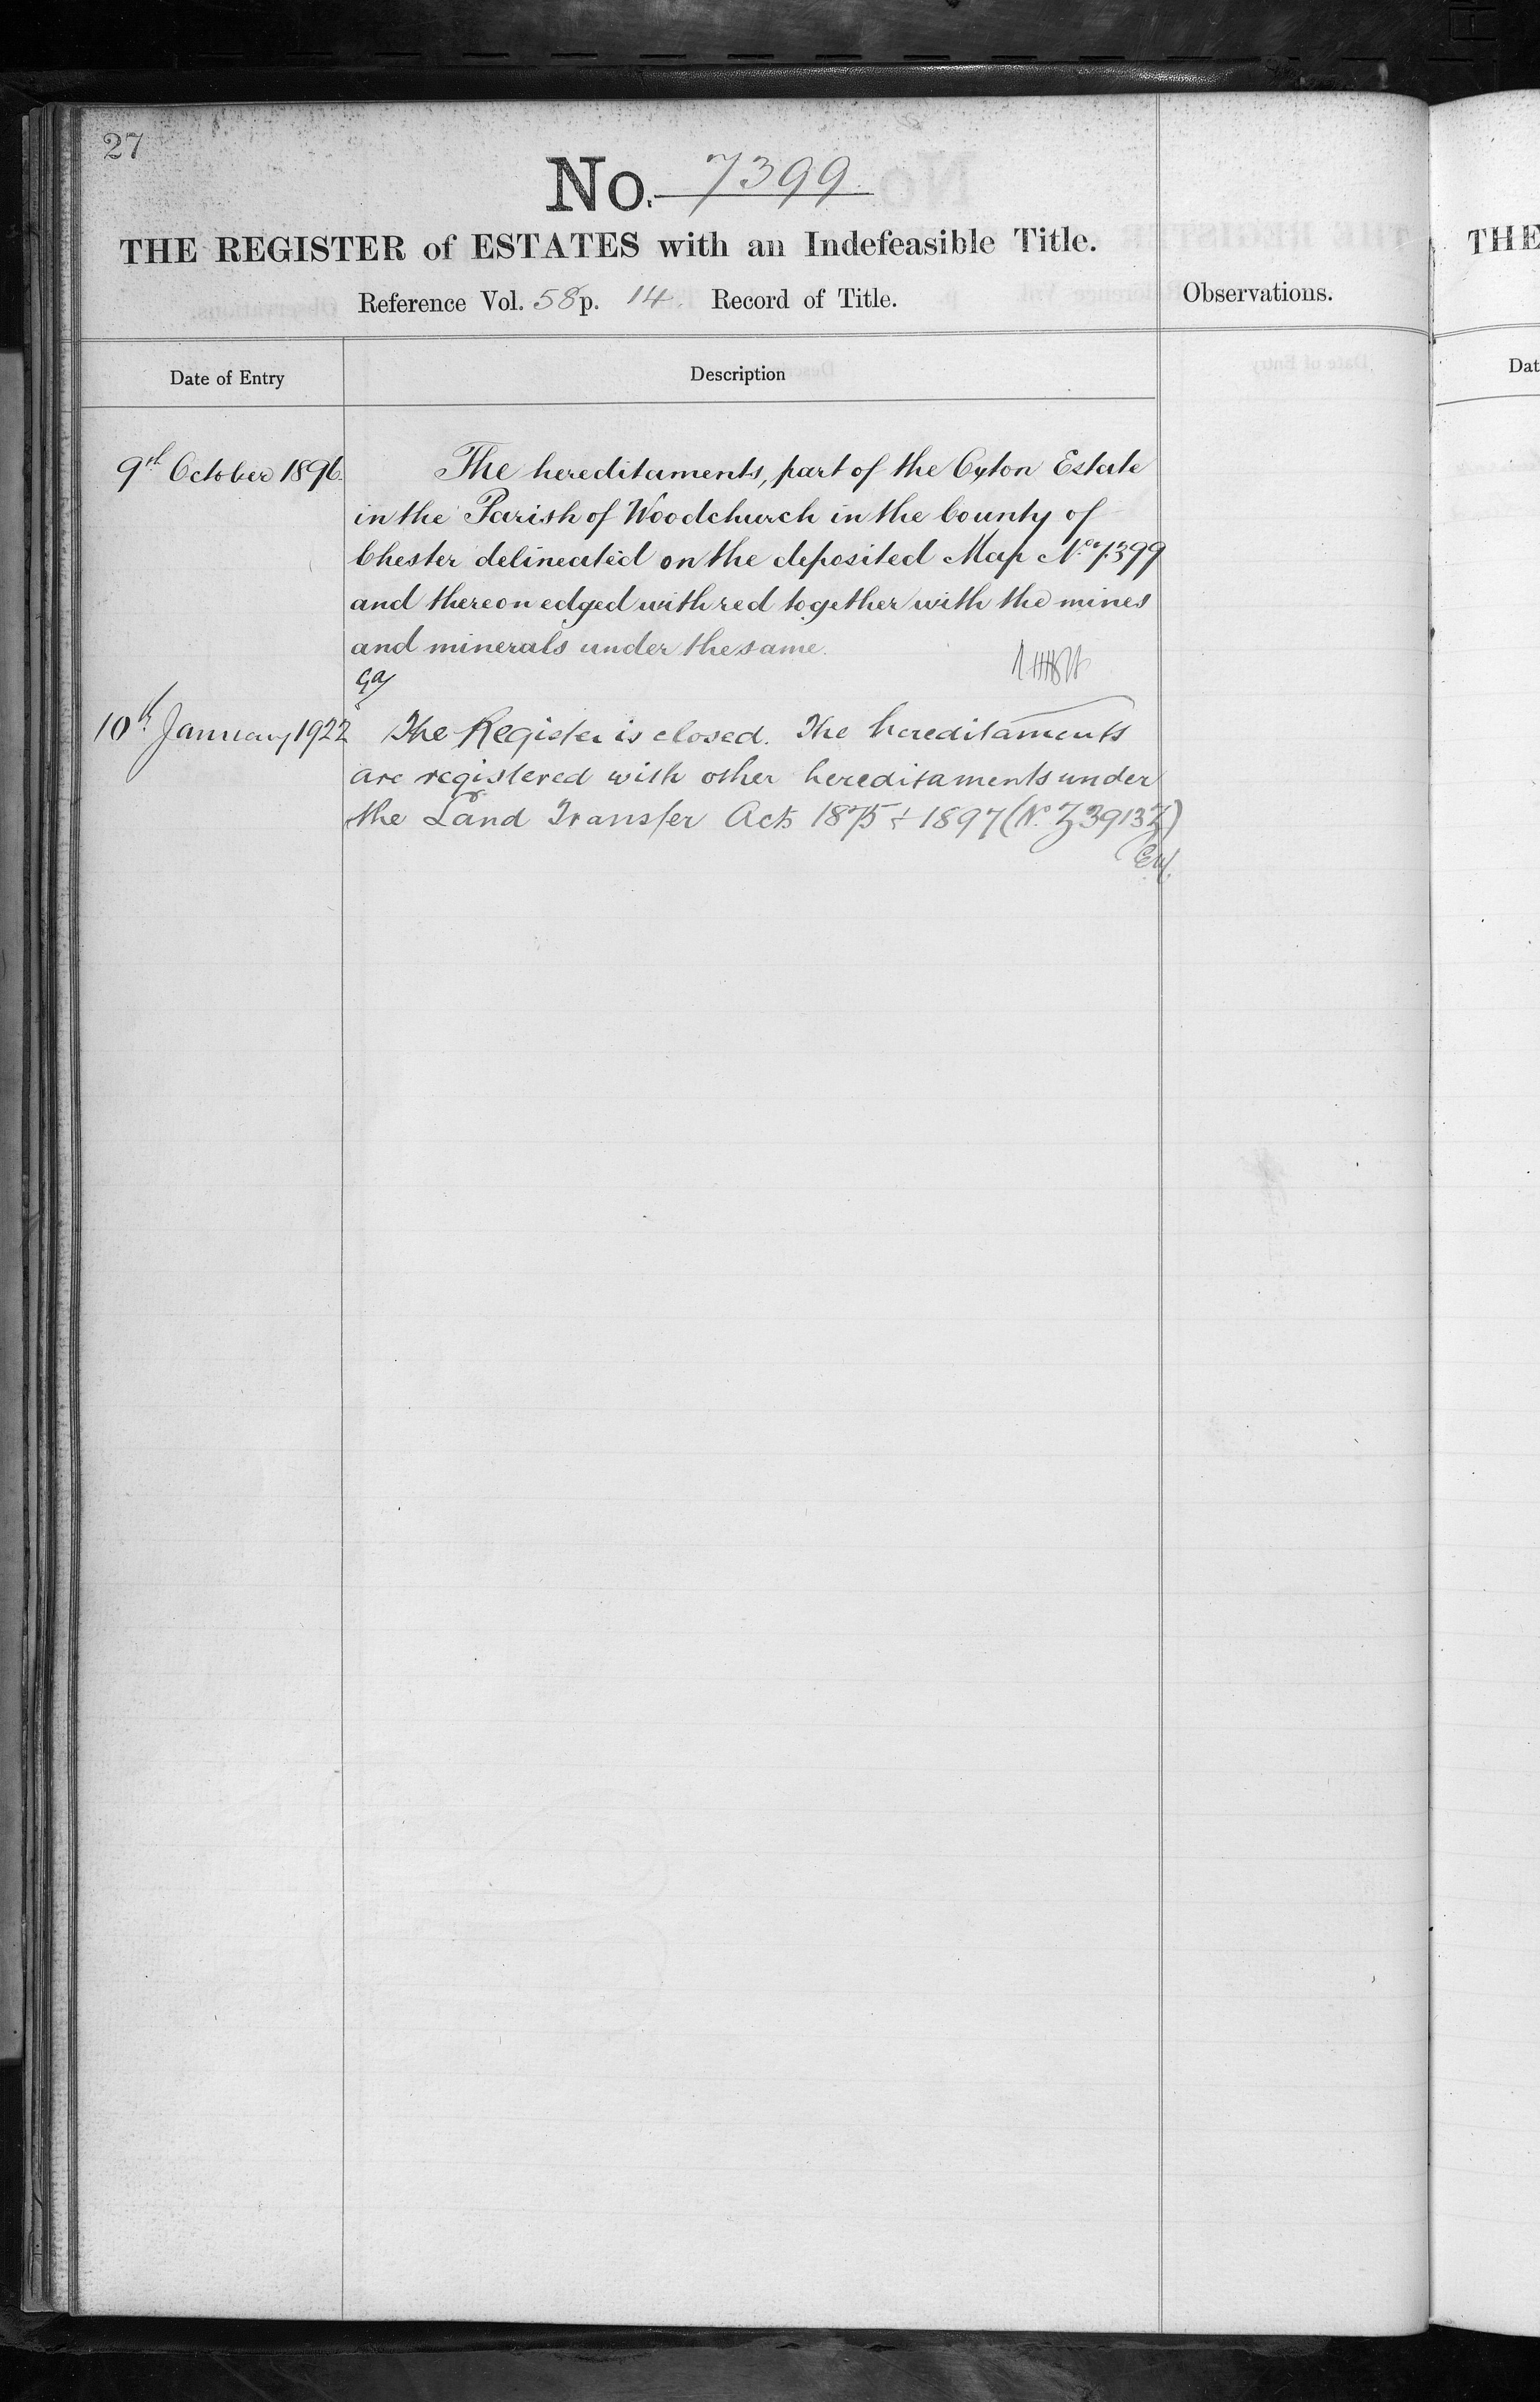 27
No. 7399
THE REGISTER of ESTATES with an Indefeasible Title.
Reference Vol. 58 p. 14 Record of Title.
Observations.
Date of Entry
Description
9th October 1896.
The hereditaments, part of the Oxton Estate
in the Parish of Woodchurch in the County of
Chester delineated on the deposited Map No. 7399
and thereon edged with red together with the mines
and minerals under the same.
10th January 1922
The Register is closed. The hereditaments
are registered with other hereditaments under
the Land Transfer Acts 1875 & 1897 (No. Z3913Z)
THE
Dat